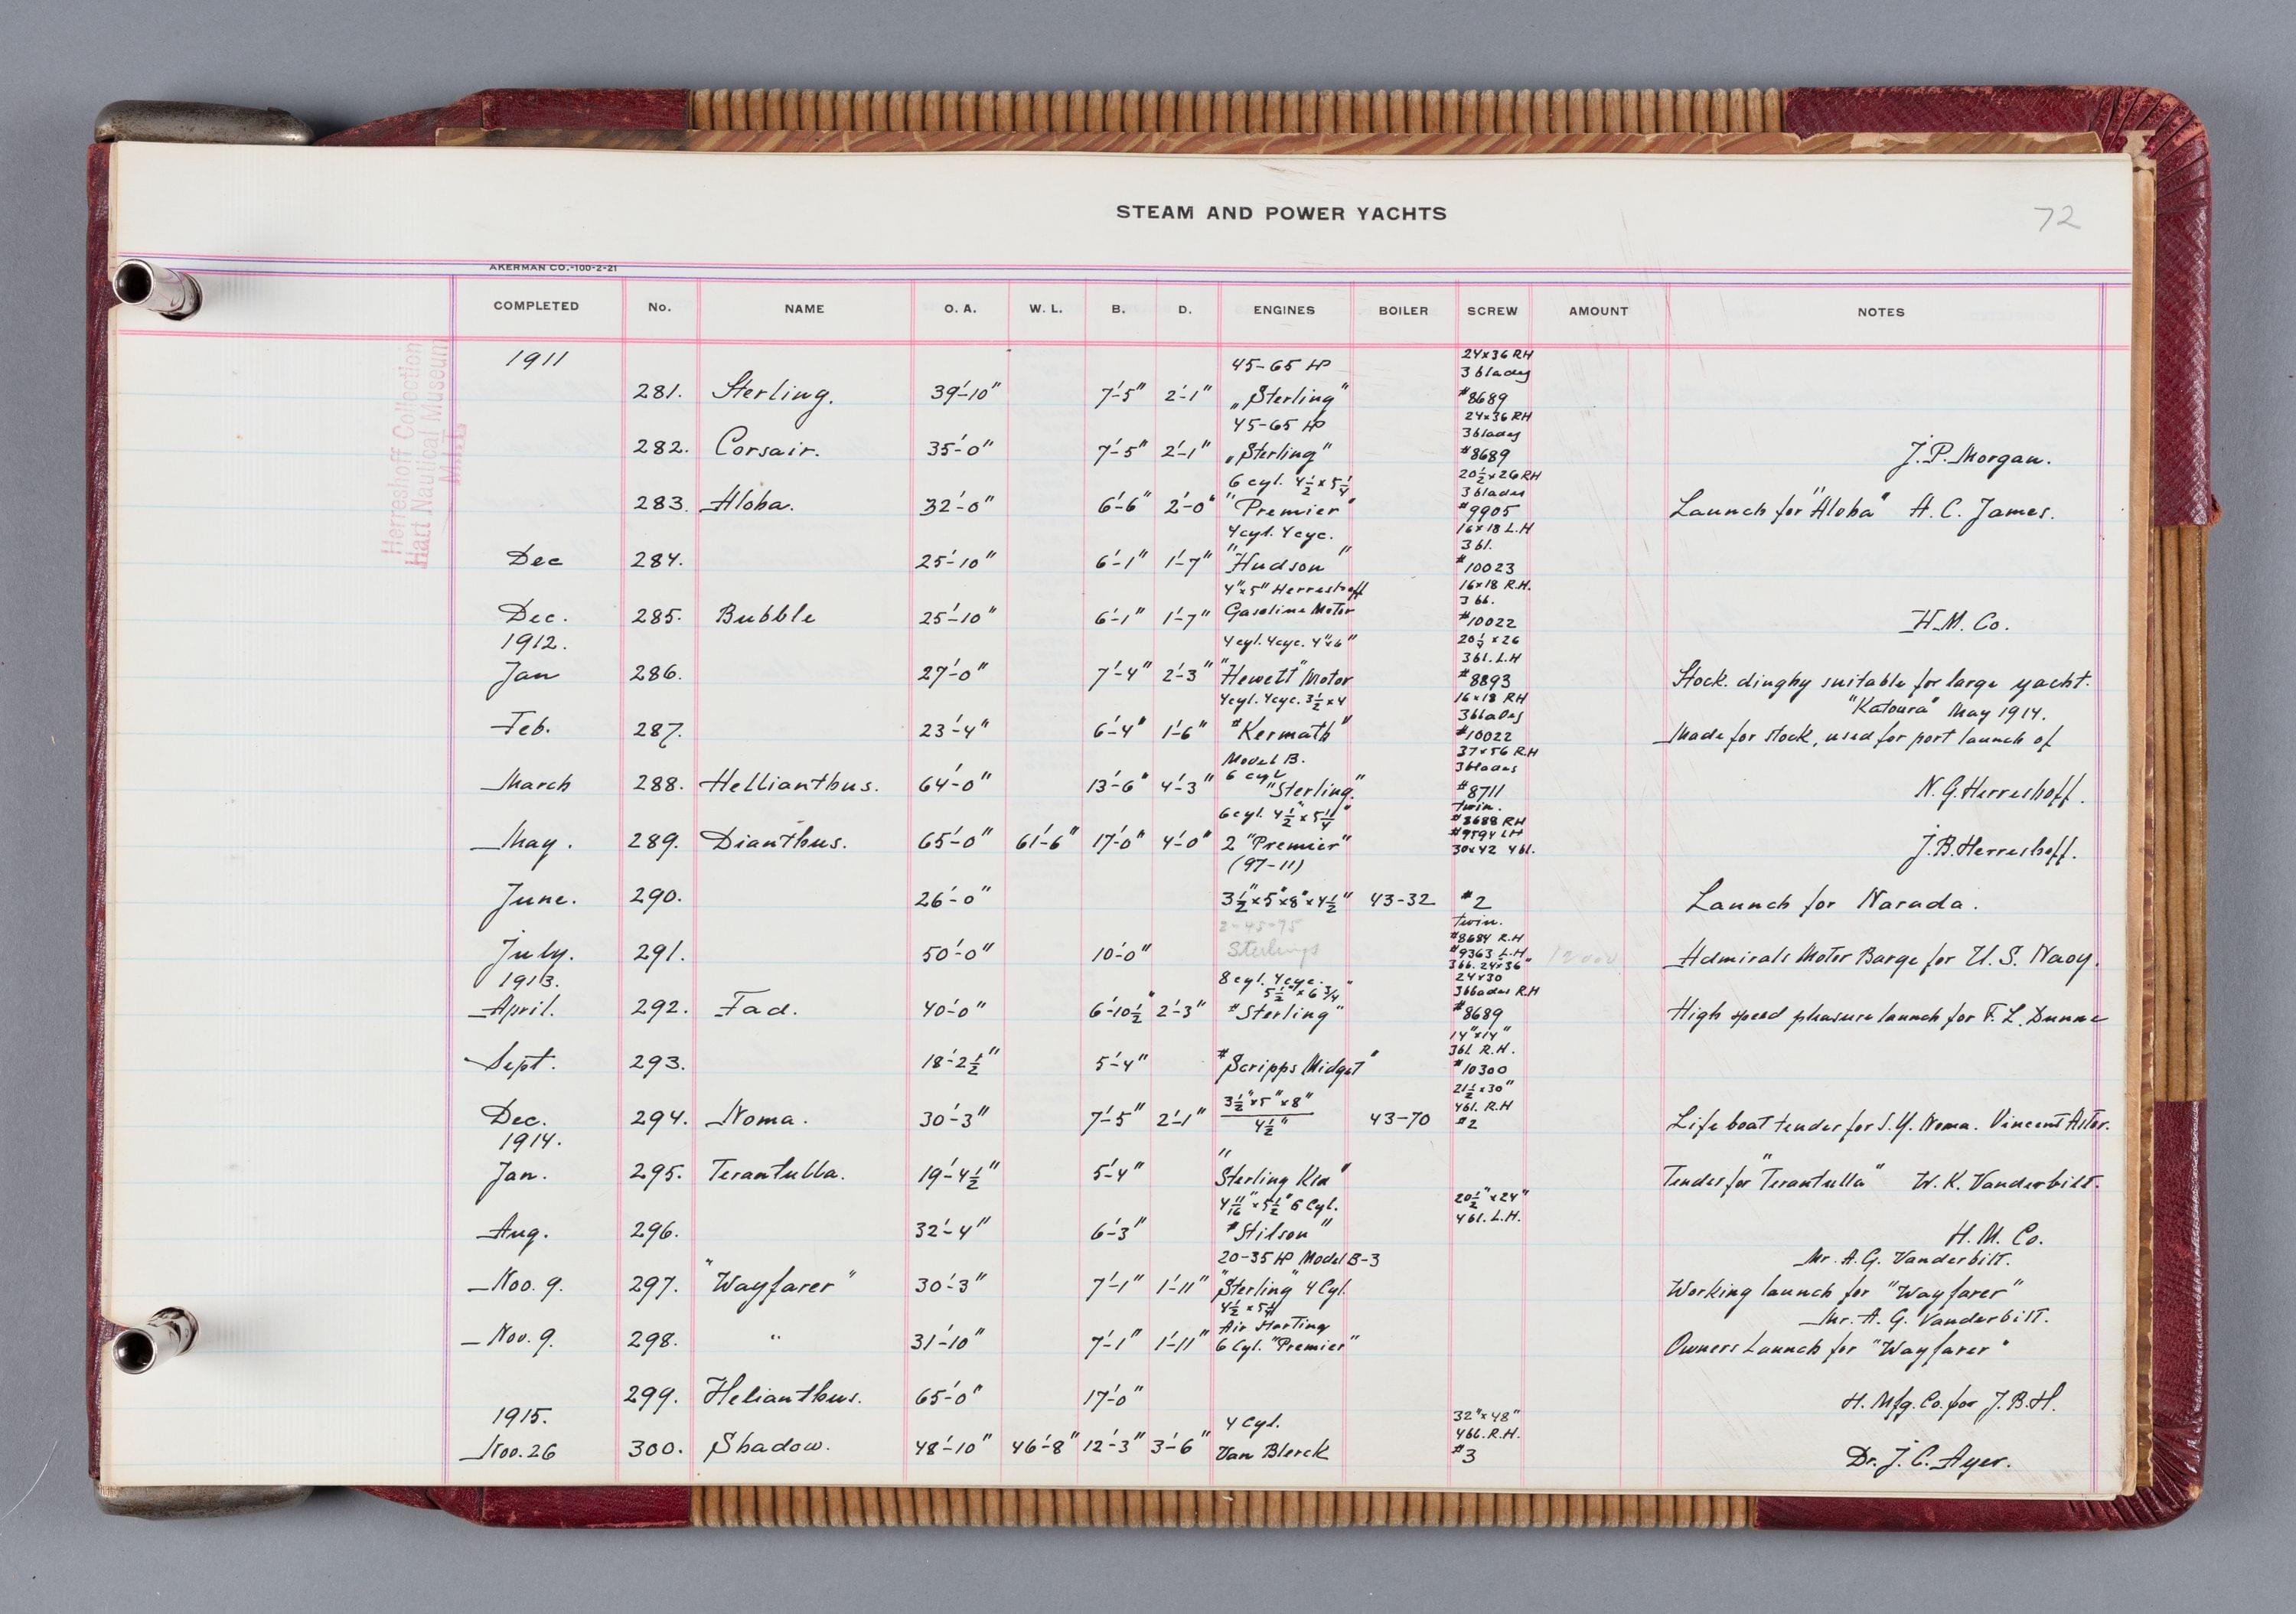 STEAM AND POWER YACHTS
72
AKERMAN CO.-100-2-21
COMPLETED No. NAME O. A. W. L. B. D. ENGINES BOILER SCREW AMOUNT NOTES
Herreshoff Collection
Hart Nautical Museum
M.I.T.
1911 45-65 HP 24x36 RH
3 blades
281. Sterling. 39'-10" 7'-5" 2'-1" "Sterling" #8689
45-65 HP 24x36 RH
3 blades
282. Corsair. 35'-0" 7'-5" 2'-1" "Sterling" #8689 J.P. Morgan.
6 cyl. 4½ x 5¼ 20½ x 26 RH
3 blades
283. Aloha. 32'-0" 6'-6" 2'-0" "Premier" #9905 Launch for "Aloha" A. C. James.
4 cyl. 4 cyc. 16x18 L.H
3 bl.
Dec 284. 25'-10" 6'-1" 1'-7" "Hudson" #10023
4"x5" Herreshoff 16x18 R.H.
3 bl.
Dec. 285. Bubble 25'-10" 6'-1" 1'-7" Gasoline Motor #10022 H.M. Co.
1912. 4 cyl. 4 cyc. 4"x6" 20½ x 26
3 bl. L.H
Jan 286. 27'-0" 7'-4" 2'-3" "Hewett" Motor #8893 Stock dinghy suitable for large yacht.
4 cyl. 4 cyc. 3½ x 4 16x18 RH "Katoura" May 1914.
3 blades
Feb. 287. 23'-4" 6'-4" 1'-6" "Kermath" #10022 Made for stock, used for port launch of
Model B. 37x56 RH
6 cyl 3 blades
March 288. Hellianthus. 64'-0" 13'-6" 4'-3" "Sterling." #8711 N. G. Herreshoff.
6 cyl. 4½" x 5¼" twin.
#8688 RH
#9594 LH
May. 289. Dianthus. 65'-0" 61'-6" 17'-0" 4'-0" 2 "Premier" 30x42 4 bl. J.B. Herreshoff.
(97-11)
June. 290. 26'-0" 3½" x 5" x 8" x 4½" 43-32 #2 Launch for Narada.
2-45-75 twin.
#8684 R.H
July. 291. 50'-0" 10'-0" Sterlings #9363 L.H 12000 Admirals Motor Barge for U. S. Navy.
3 bl. 24x36"
1913. 8 cyl. 4 cyc. 24x30
5½" x 6¾" 3 blades RH
April. 292. Fad. 40'-0" 6'-10½" 2'-3" "Sterling" #8689 High speed pleasure launch for F. L. Dunne
14"x14"
3 bl. R.H.
Sept. 293. 18'-2½" 5'-4" "Scripps Midget" #10300
3½" x 5" x 8" 21½ x 30"
4 bl. R.H
Dec. 294. Noma. 30'-3" 7'-5" 2'-1" 4½" 43-70 #2 Life boat tender for S.Y. Noma. Vincent Astor.
1914.
Jan. 295. Terantulla. 19'-4½" 5'-4" "Sterling Kid" Tender for "Terantulla" W. K. Vanderbilt.
4 11/16" x 5½" 6 Cyl. 20½" x 24"
4 bl. L.H.
Aug. 296. 32'-4" 6'-3" "Stilson" H. M. Co.
20-35 HP Model B-3 Mr. A. G. Vanderbilt.
Nov. 9. 297. "Wayfarer" 30'-3" 7'-1" 1'-11" "Sterling" 4 Cyl. Working launch for "Wayfarer"
4½ x 5¼
Air Starting Mr. A. G. Vanderbilt.
Nov. 9. 298. " 31'-10" 7'-1" 1'-11" 6 Cyl. "Premier" Owners Launch for "Wayfarer"
299. Helianthus. 65'-0" 17'-0" H. Mfg. Co. for J. B. H.
1915. 4 Cyl. 32"x48"
4 bl. R.H.
Nov. 26 300. Shadow. 48'-10" 46'-8" 12'-3" 3'-6" Van Blerck #3 Dr. J. C. Ayer.